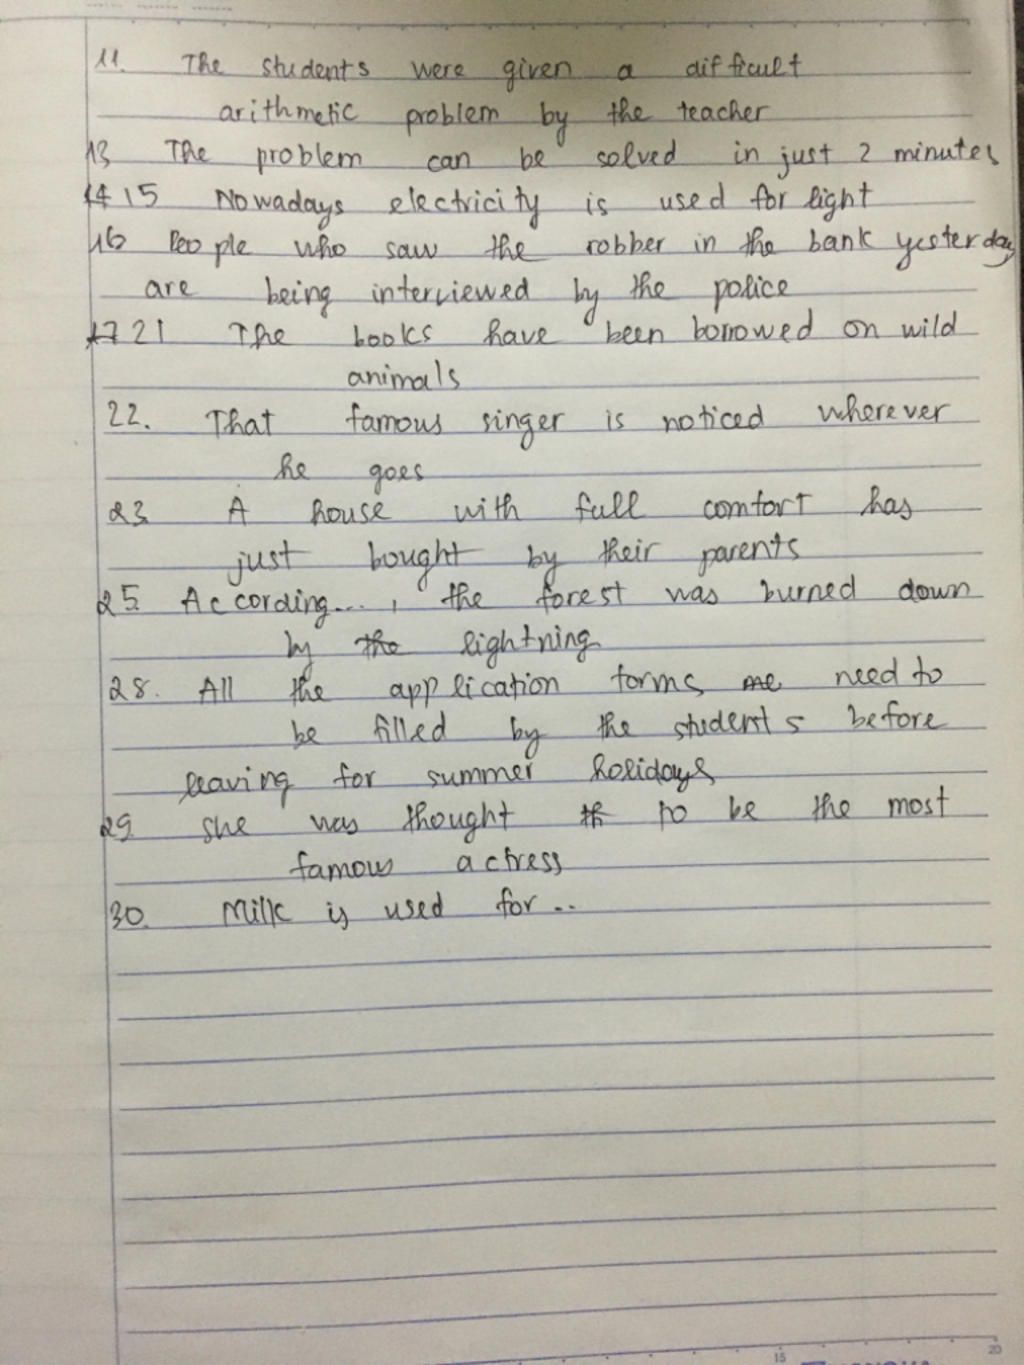 11. The students were given a difficult
arithmetic problem by the teacher
13 The problem can be solved in just 2 minutes
14 15 Nowadays electricity is used for light
16 People who saw the robber in the bank yesterday
are being interviewed by the police
17 21 The books have been borrowed on wild
animals
22. That famous singer is noticed wherever
he goes
23 A house with full comfort has
just bought by their parents
25. According..., the forest was burned down
by the lightning
28. All the application forms need to
be filled by the students before
leaving for summer holidays
29 she was thought th to be the most
famous actress
30. Milk is used for..
15
20